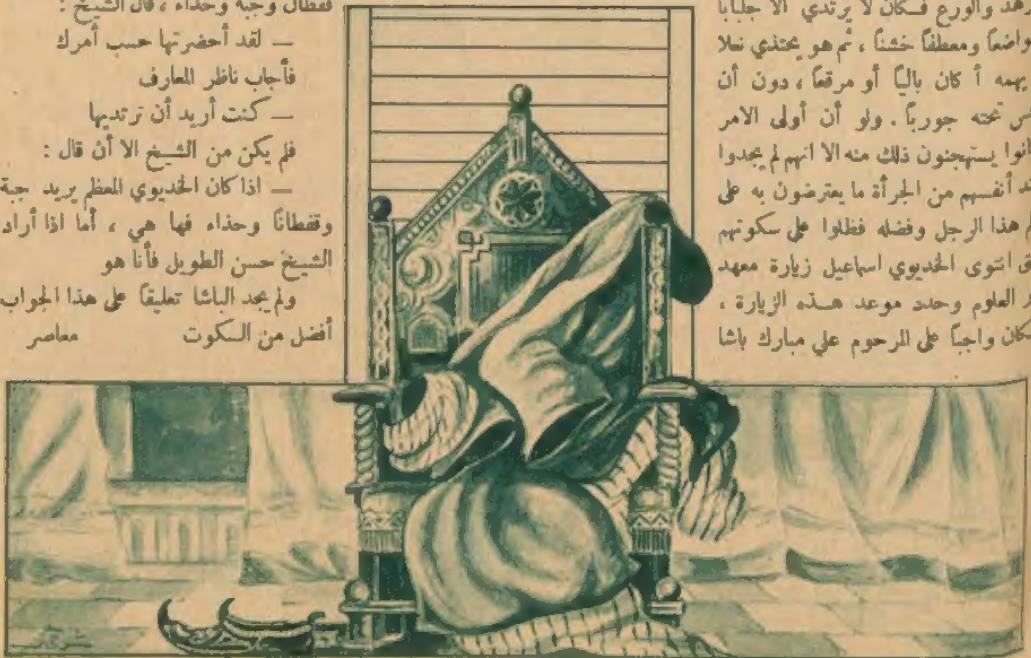 هد والورع فكان لا يرتدي الا جلبابا
واضعاً ومعطفاً خشناً ، ثم هو يحتذي نعلا
يهمه أ كان بالياً أو مرقعاً ، دون أن
س تحته جورباً . ولو أن أولى الامر
انوا يستهجنون ذلك منه الا انهم لم يجدوا
أنفسهم من الجرأة ما يعترضون به على
هذا الرجل وفضله فظلوا على سكوتهم
انتوى الخديوي اسماعيل زيارة معهد
العلوم وحدد موعد هذه الزيارة ،
كان واجباً على المرحوم علي مبارك باشا
وجبة وحذاء ، قال الشيخ :
— لقد أحضرتها حسب أمرك
فأجاب ناظر المعارف
— كنت أريد أن ترتديها
فلم يكن من الشيخ الا أن قال :
— اذا كان الخديوي المعظم يريد جبة
وقفطانًا وحذاء فها هي ، أما اذا أراد
الشيخ حسن الطويل فأنا هو
ولم يجد الباشا تعليقاً على هذا الجواب
أفضل من السكوت معاصر